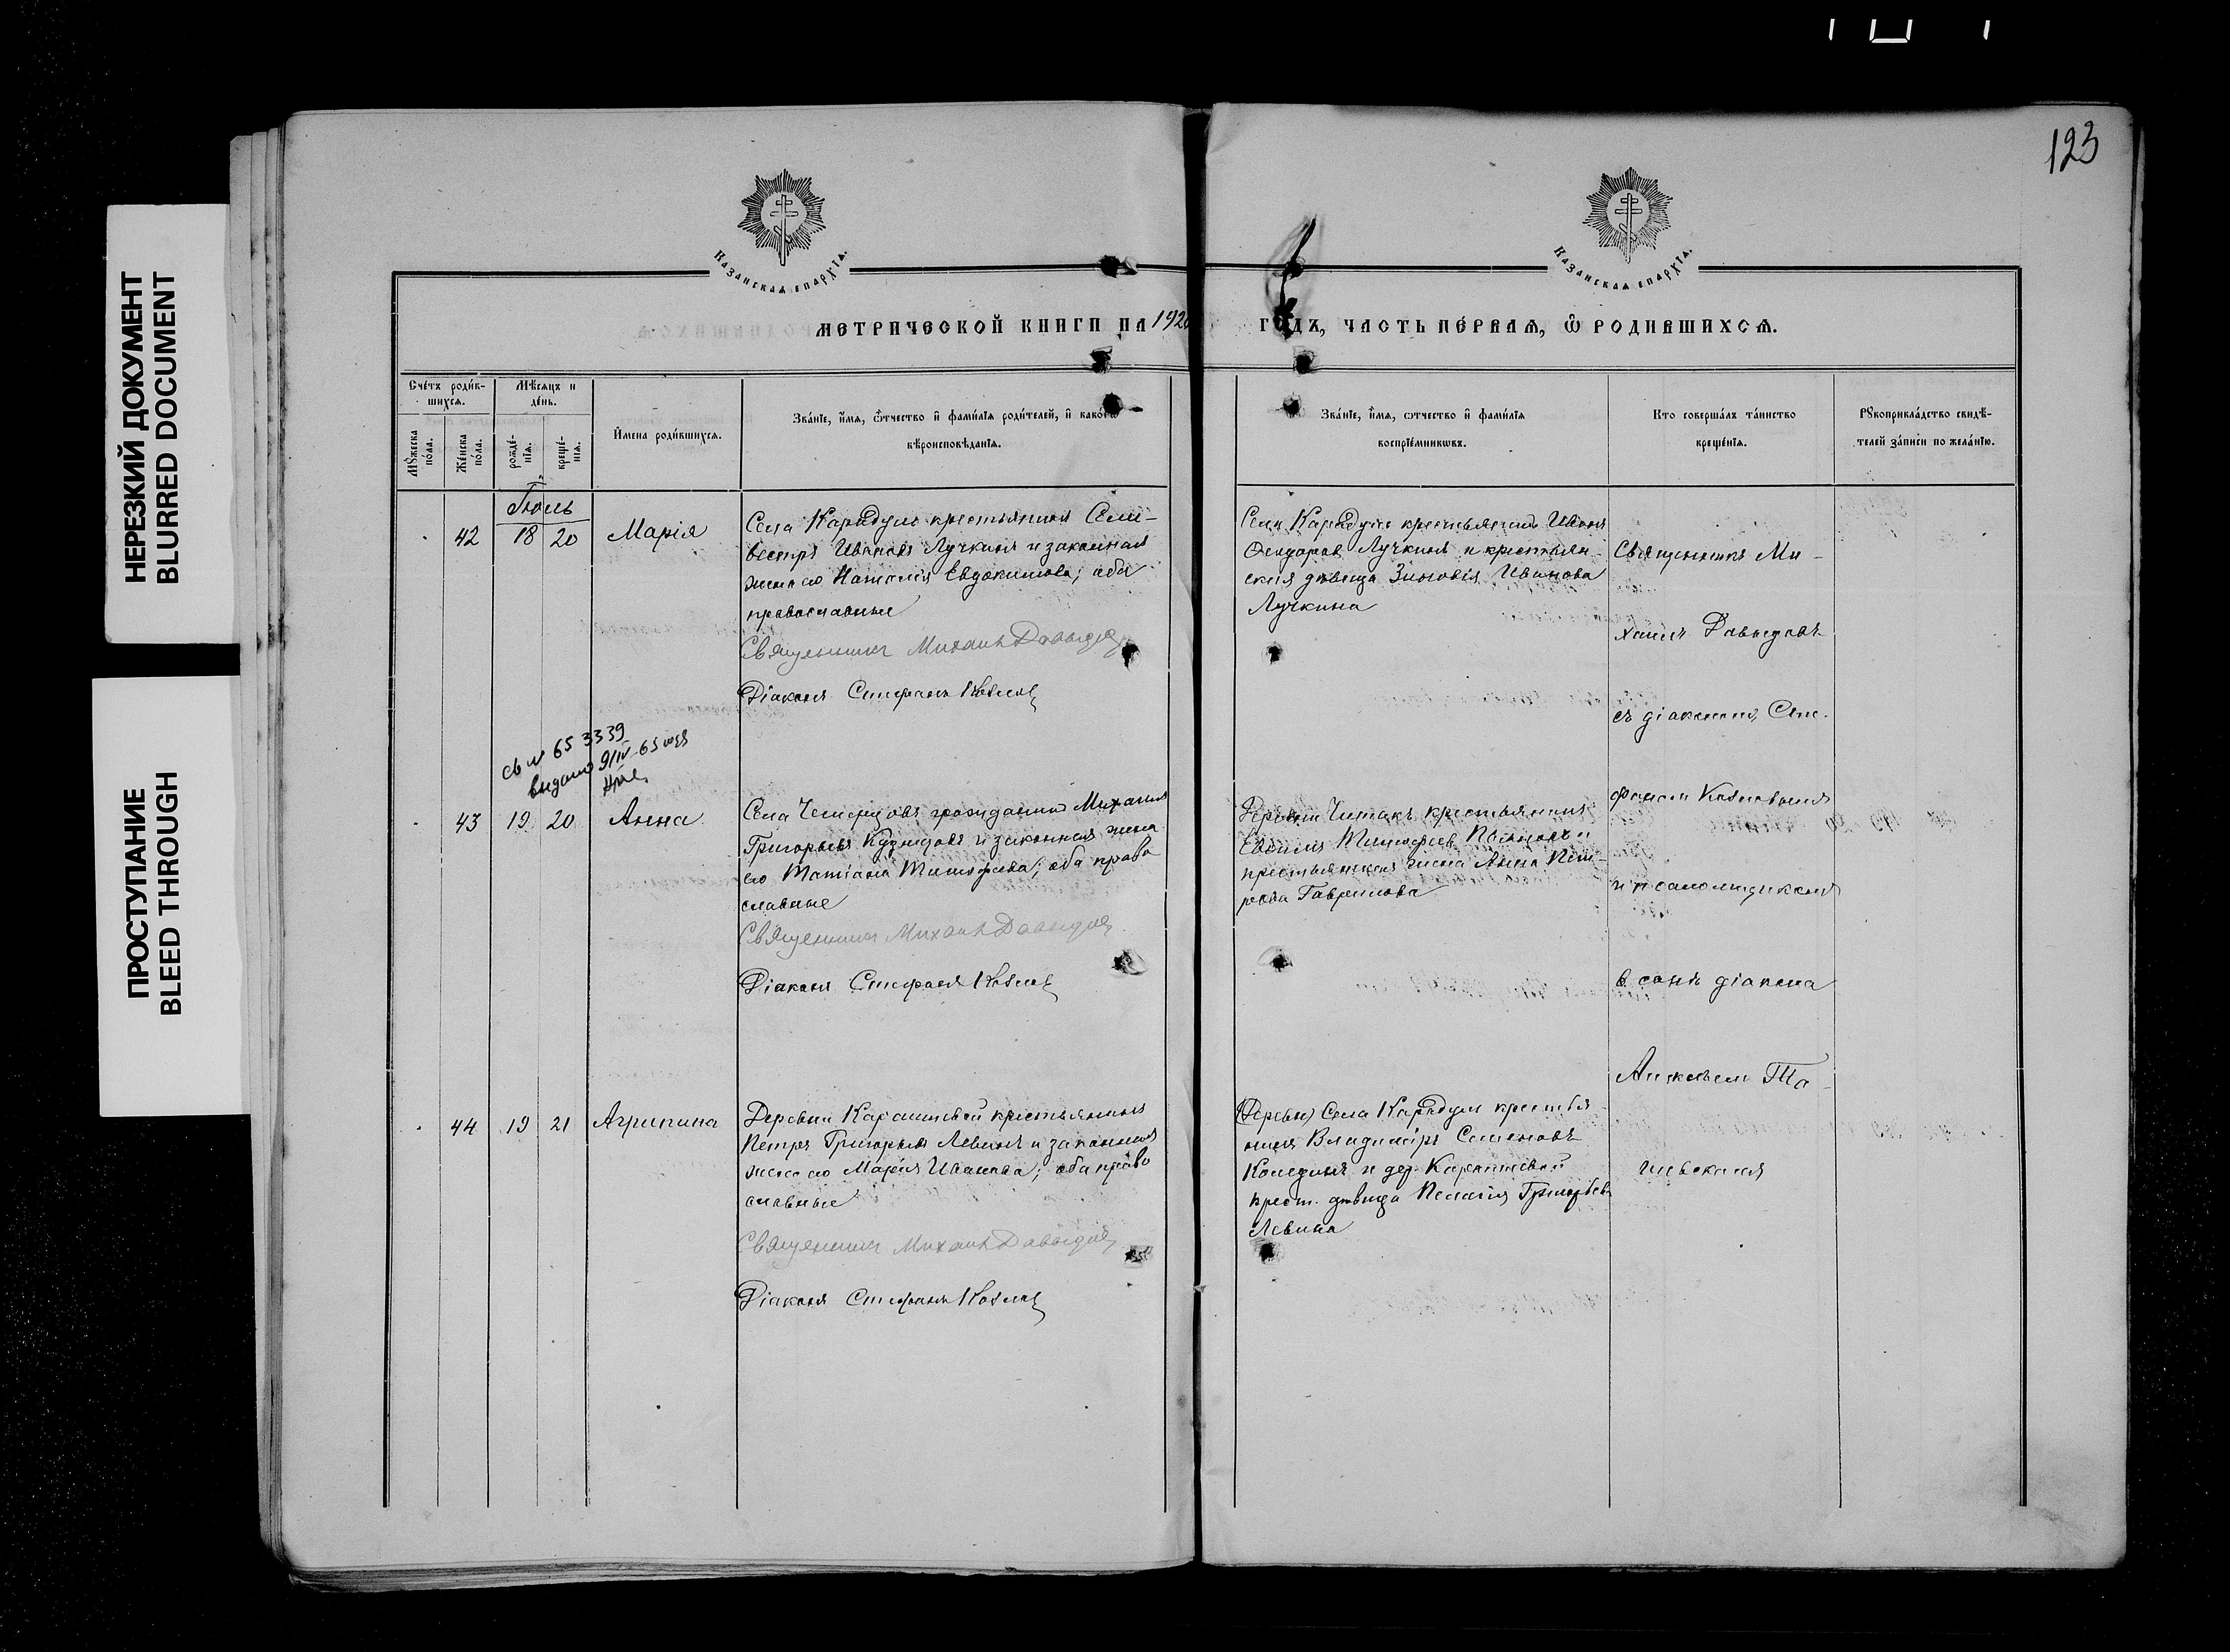 НЕРЕЗКИЙ ДОКУМЕНТ
BLURRED DOCUMENT
ПРОСТУПАНИЕ
BLEED THROUGH
123
Казанская епархїѧ.
Казанская епархїѧ.
МЕТРИЧЕСКОЙ КНИГИ НА 192
ГОДЪ, ЧАСТЬ ПЕ́РВАѦ, Ѡ РОДИВШИХСѦ.
Сче́тъ роди́вшихсѧ.
Мꙋ́жеска по́ла.
Же́нска по́ла.
Мѣ́сѧцъ и де́нь.
рожде́нїѧ.
креще́нїѧ.
И́мена роди́вшихсѧ.
Зва́нїе, и́мѧ, ѻ́тчество и҆ фами́лїѧ роди́телей, и҆ како́гѡ
вѣроисповѣ́данїѧ.
Зва́нїе, и́мѧ, ѻтчество и҆ фами́лїѧ
воспрїе́мникѡвъ.
Кто соверша́лъ та́инство
креще́нїѧ.
Рꙋкоприкла́дство свидѣ́-
телей за́писи по жела́нїю.
Іюль
42 18 20 Марія
Села Карадулъ крестьянинъ Сели-
вестръ Ивановъ Лучкинъ и законная
жена его Наталія Евдокимова; оба
православные
Священникъ Михаилъ Давыдовъ
Діаконъ Стефанъ Козловъ
Села Карадулъ крестьянинъ Иванъ
Феодоровъ Лучкинъ и крестьян-
ская дѣвица Зиновія Иванова
Лучкина
Священникъ Ми-
хаилъ Давыдовъ
съ діакономъ Сте-
фаномъ Козловымъ
и псаломщикомъ
в санѣ діакона
Та-
св № 65 3339
выдано 9/IV-65 года
43 19 20 Анна
Села гражданинъ Михаилъ
Григорьевъ и законная жена
его Татіана Тимофеева; оба право
славные
Священникъ Михаилъ Давыдовъ
Діаконъ Стефанъ Козловъ
Деревни Читакъ крестьянинъ
Тимофеев и
крестьянская жена Анна Пет-
рова Гаврилова
44 19 21 Агрипина
Деревни крестьянинъ
Петръ Григорьевъ Левинъ и законная
жена его Марія Иванова; оба право
славные
Священникъ Михаилъ Давыдовъ
Діаконъ Стефанъ Козловъ
(Деревн) Села Карадулъ крестья
нинъ Владиміръ Семеновъ
и дер.
крест. дѣвица Пелагія Григорьев
Левина